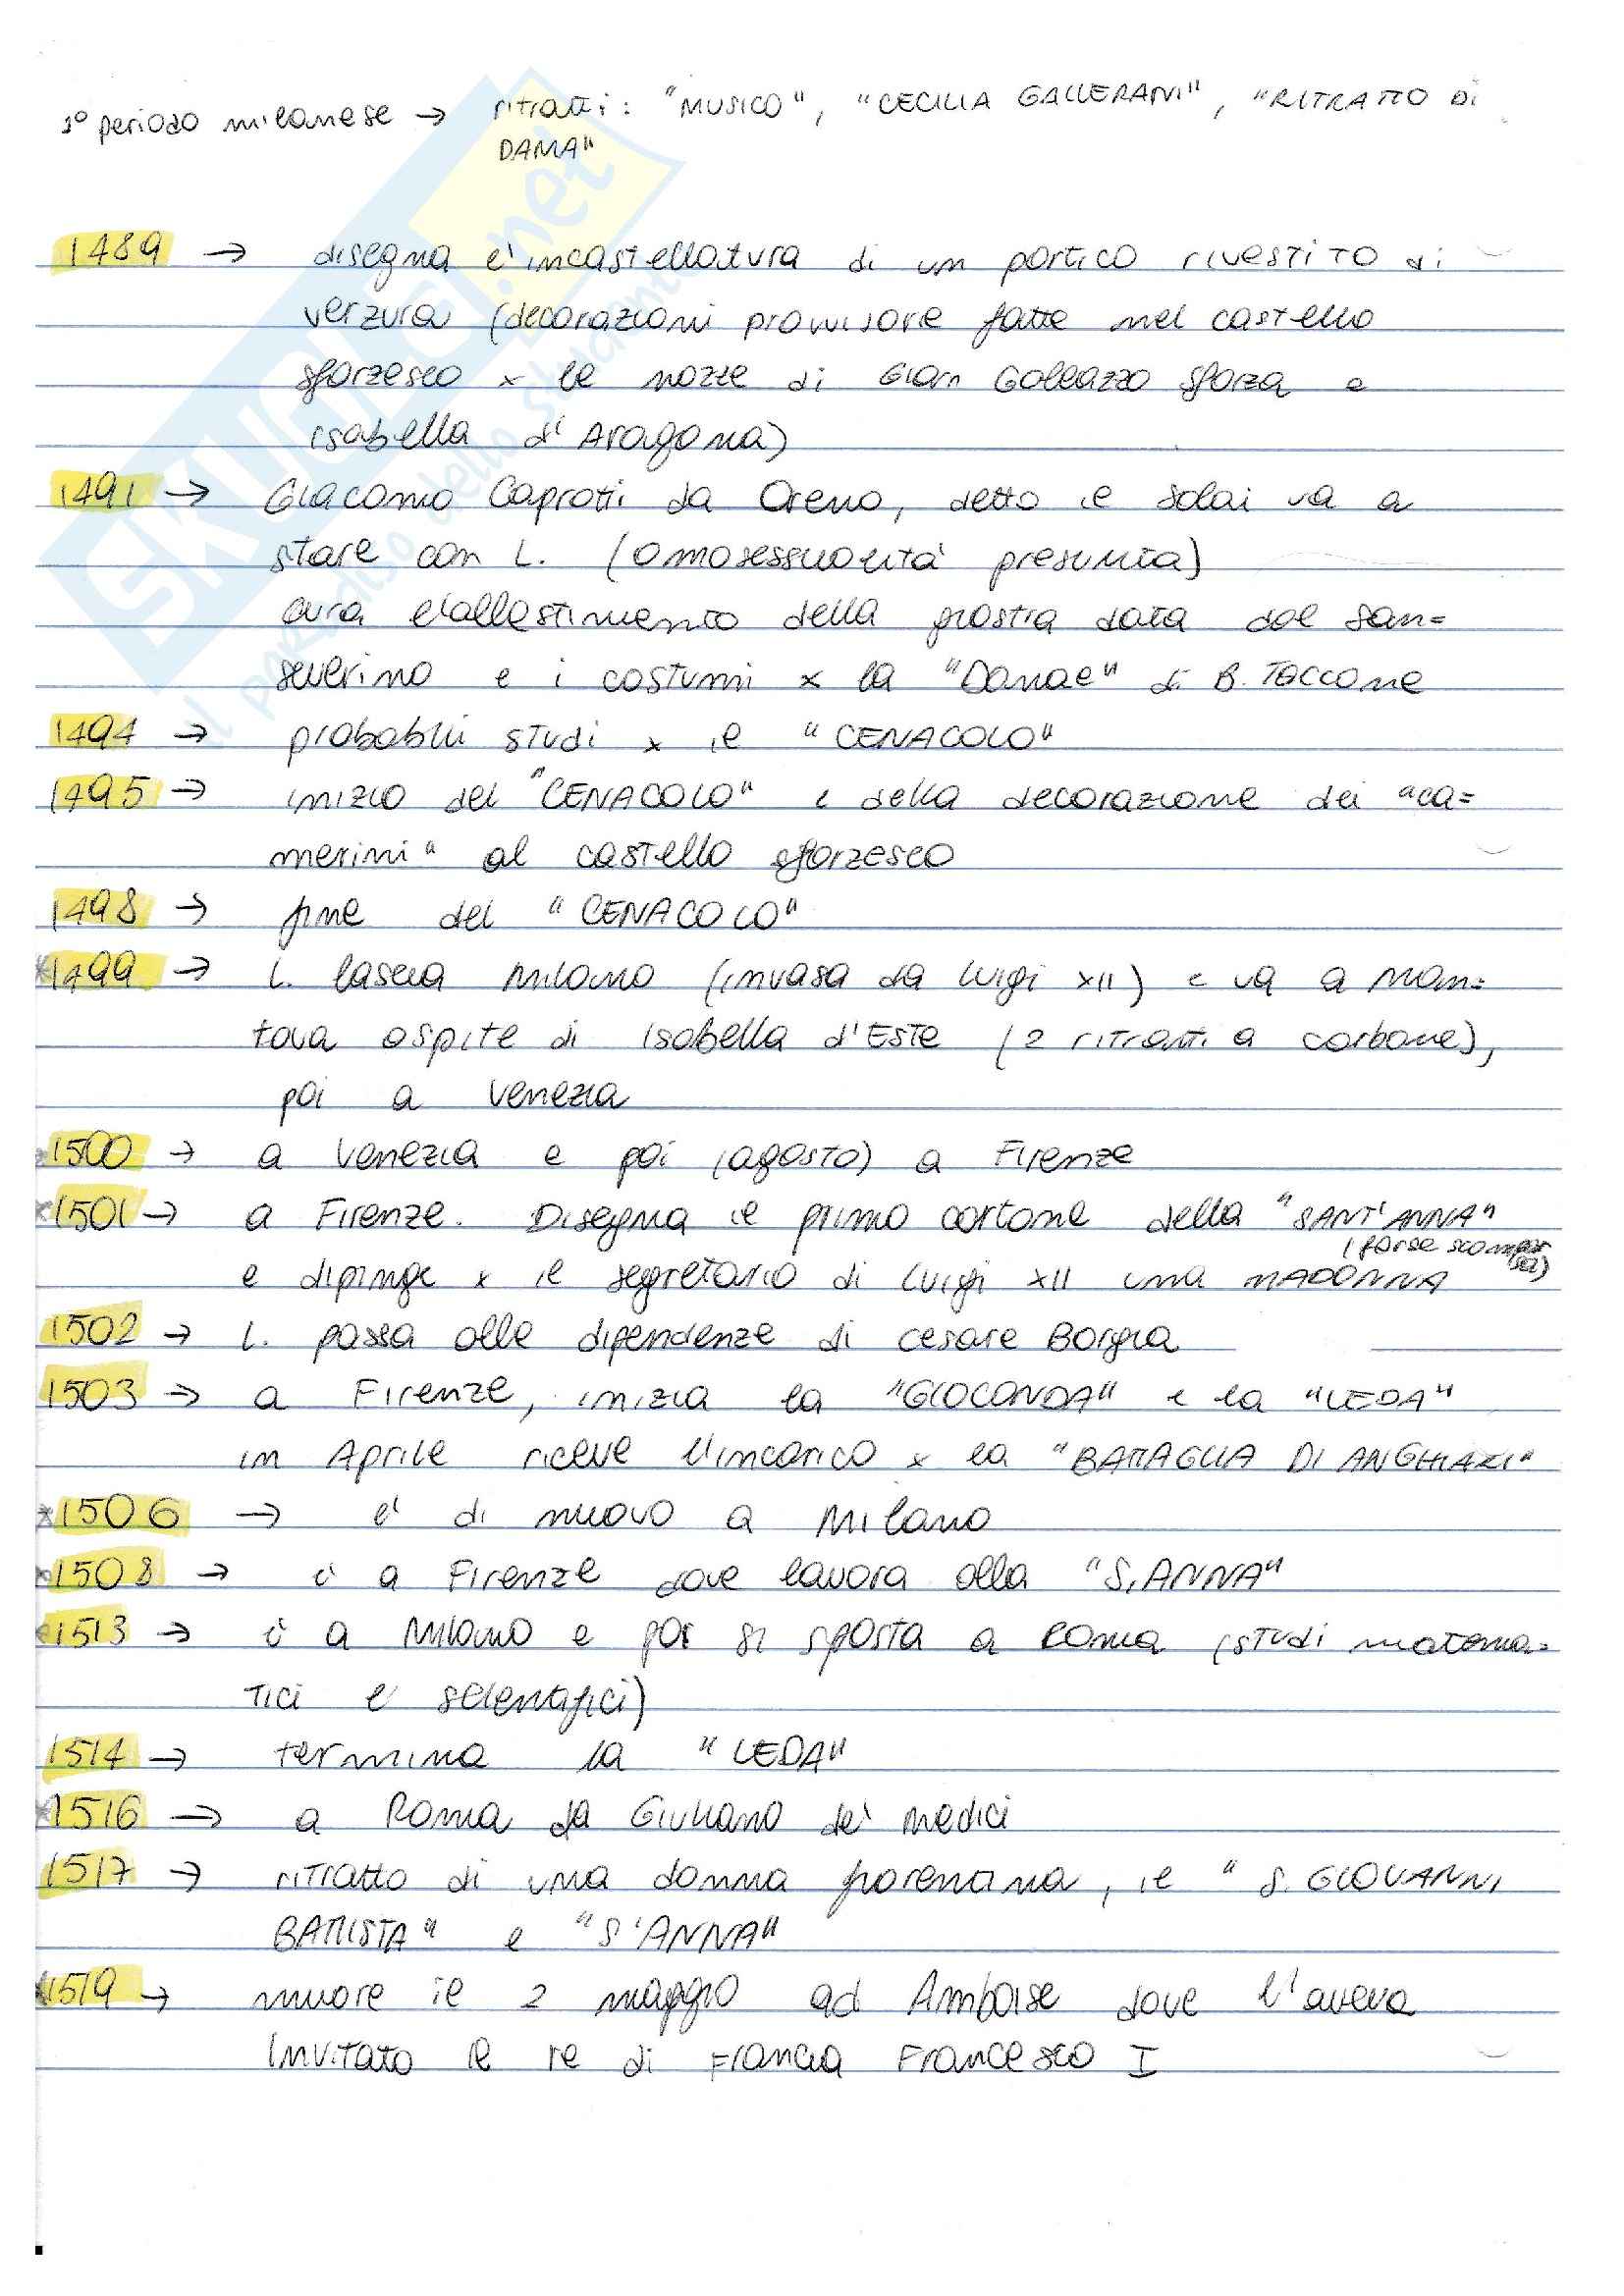 1° periodo milanese → ritratti: "MUSICO", "CECILIA GALLERANI", "RITRATTO DI
DAMA"
1489 → disegna l'incastellatura di un portico rivestito di
verzura (decorazioni provvisorie fatte nel castello
sforzesco x le nozze di Gian Galeazzo Sforza e
Isabella d'Aragona)
1491 → Giacomo Caprotti da Oreno, detto il Salai va a
stare con L. (omosessualità presunta)
cura l'allestimento della giostra data dal San=
severino e i costumi x la "Danae" di B. Taccone
1494 → probabili studi x il "CENACOLO"
1495 → inizio del "CENACOLO" e della decorazione dei "ca=
merini" al castello sforzesco
1498 → fine del "CENACOLO"
*1499 → L. lascia Milano (invasa da Luigi XII) e va a Man=
tova ospite di Isabella d'Este (2 ritratti a carbone),
poi a Venezia
*1500 → a Venezia e poi (agosto) a Firenze
*1501 → a Firenze. Disegna il primo cartone della "SANT'ANNA"
(forse scomparsa)
e dipinge x il segretario di Luigi XII una MADONNA
1502 → L. passa alle dipendenze di Cesare Borgia
1503 → a Firenze, inizia la "GIOCONDA" e la "LEDA"
in Aprile riceve l'incarico x la "BATTAGLIA DI ANGHIARI"
*1506 → è di nuovo a Milano
*1508 → è a Firenze dove lavora alla "S. ANNA"
*1513 → è a Milano e poi si sposta a Roma (studi matema=
tici e scientifici)
1514 → termina la "LEDA"
*1516 → a Roma da Giuliano de' Medici
1517 → ritratto di una donna fiorentina, il "S. GIOVANNI
BATTISTA" e "S'ANNA"
*1519 → muore il 2 maggio ad Amboise dove l'aveva
invitato il re di Francia Francesco I
SKUOLA.net
il portale dello studente